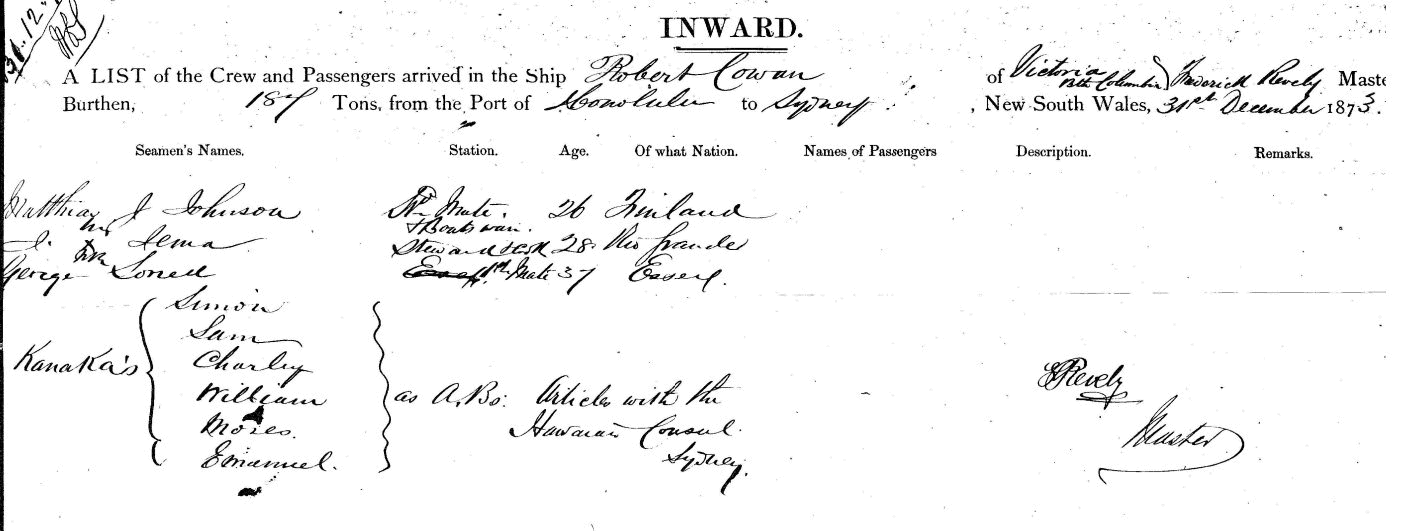 31.12
INWARD.
A LIST of the Crew and Passengers arrived in the Ship Robert Cowan of Victoria Bth Columbia Frederick Revely Maste
Burthen, 187 Tons, from the Port of Honolulu to Sydney , New South Wales, 31st December 1873.
Seamen's Names. Station. Age. Of what Nation. Names of Passengers Description. Remarks.
Matthias J Johnson Mate. 26 Finland
& Boatswain.
J. Jema Steward & Cook 28 Rio Grande
George Mate 37 Essex.
Simon
Sam
Kanaka's Charley Revely
William as A.Bs: Articles with the
Moses. Hawaian Consul Master
Emanuel. Sydney.